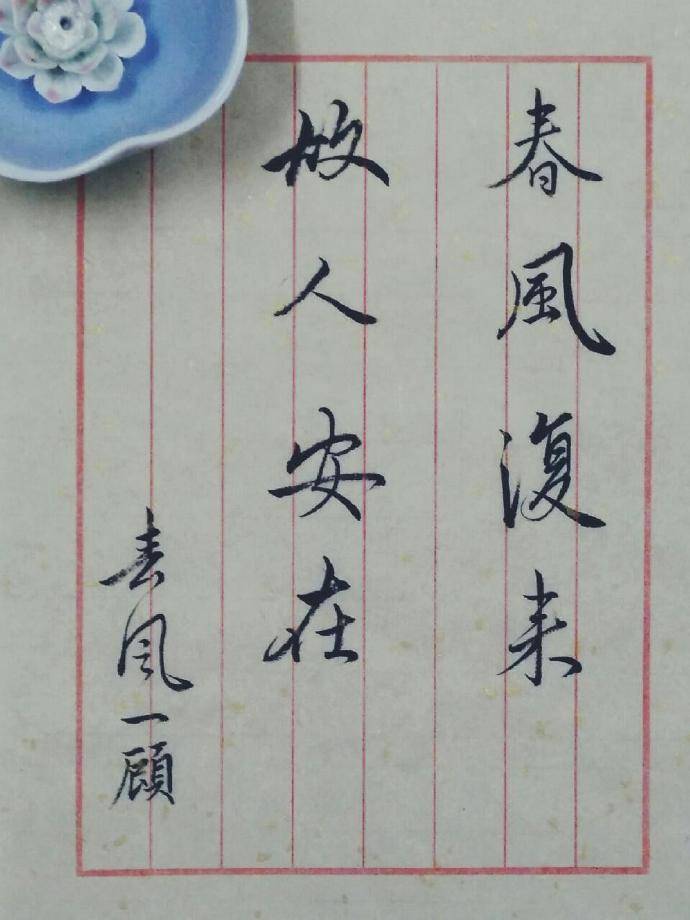 春風復来
故人安在
春风一顧